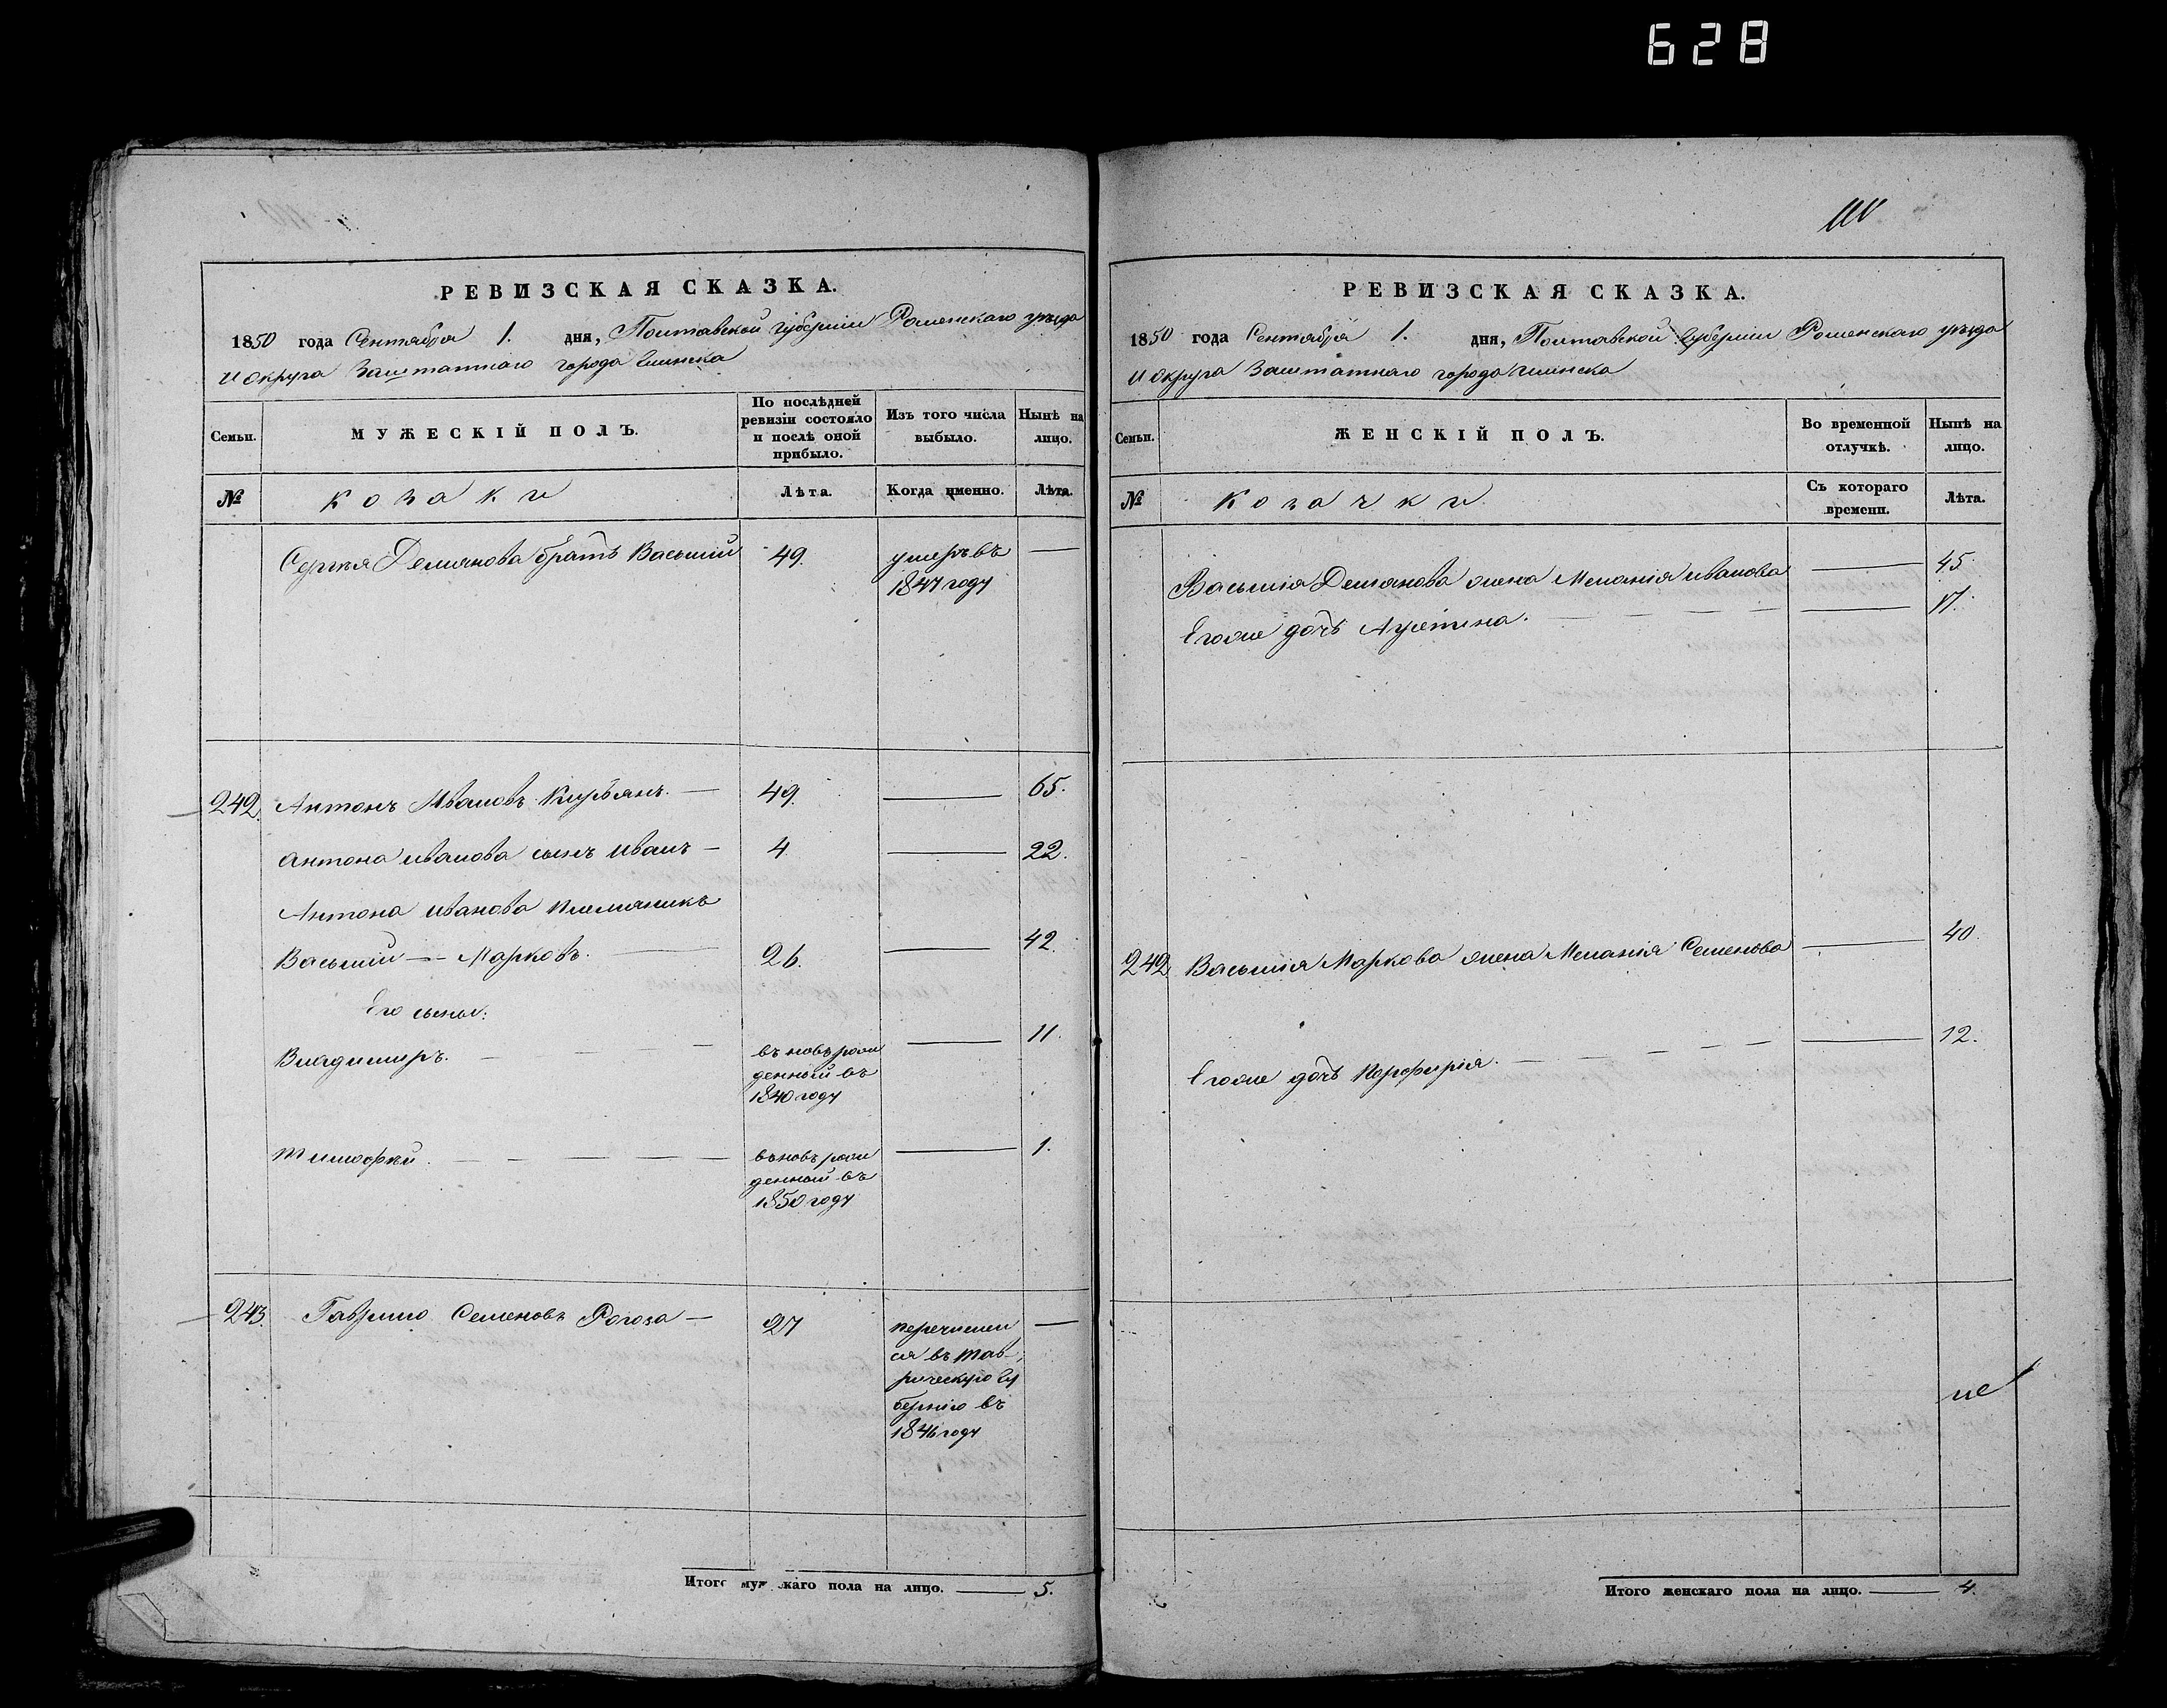 628
РЕВИЗСКАЯ СКАЗКА.
1850 года Сентября 1. дня, Полтавской губернии Роменскаго уѣзда
и округа Заштатнаго города Глинска
Семьи.
МУЖЕСКІЙ ПОЛЪ.
По послѣдней ревизіи состояло и послѣ оной прибыло.
Изъ того числа выбыло.
Нынѣ на лицо.
№
козаки
Лѣта.
Когда именно.
Лѣта.
Сергѣя Демянова братъ Василій 49. умеръ въ —
1847 году
242. Антонъ Ивановъ Кирьянъ. — 49. — 65.
Антона Иванова сынъ Иванъ — 4 — 22.
Антона Иванова племяникъ
Василий — Марковъ. — 26. — 42.
Его сыны:
Владимиръ. — въ новь рож — 11.
денный въ
1840 году
Тимофей. — вновь рож — 1.
денный въ
1850 году
243. Гаврило Семеновъ Рогоза — 27 перечислил —
ся въ Тав-
рическую Гу
бернію въ
1846 году
Итого мужскаго пола на лицо. — 5.
РЕВИЗСКАЯ СКАЗКА.
1850 года Сентября 1. дня, Полтавской Губерніи Роменскаго уѣзда
и округа Заштатнаго города Глинска
Семьи.
ЖЕНСКІЙ ПОЛЪ.
Во временной отлучкѣ.
Нынѣ на лицо.
№
Козачки
Съ котораго времени.
Лѣта.
Василія Демянова жена Меланія Иванова — 45.
Егоже дочь Агрепина. — 17.
242. Василія Маркова жена Меланія Семенова — 40.
Егоже дочь Порфирія. — 12.
Итого женскаго пола на лицо. — 4.